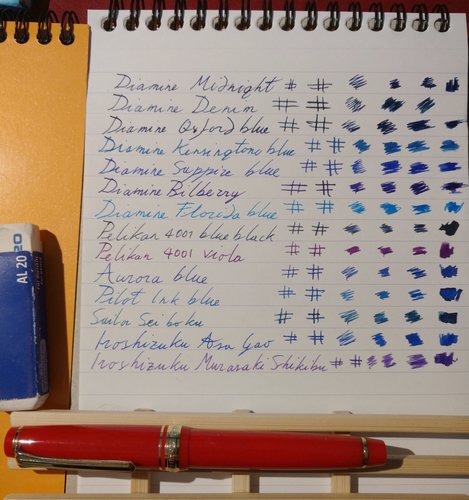 Diamine Midnight # #
Diamine Denim # #
Diamine Oxford blue # #
Diamine Kensingtono blue # #
Diamine Suppize blue # #
Diamine Bilberry # #
Diamine Florida blue # #
Pelikan 4001 blue black # #
Pelikan 4001 viola # #
Aurora blue # #
Pilot Ink blue # #
Sailor Sei boku # #
Iroshizuku Asa Gao # #
Iroshizuku Murasaki Shikibu # #
AL 20